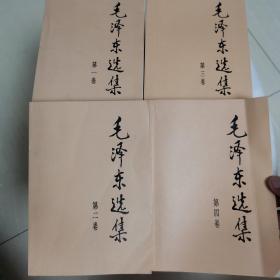 毛泽东选集
第一卷
毛泽东选集
第三卷
毛泽东选集
第二卷
毛泽东选集
第四卷